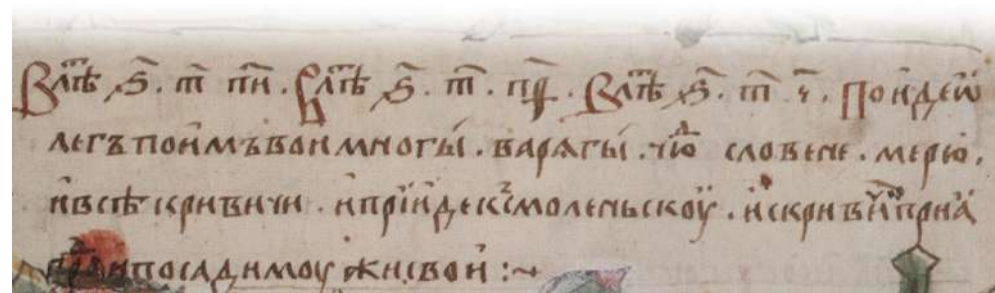 В лѣⷮ ҂ѕ҃. т҃. п҃и. В лѣⷮ ҂ѕ҃. т҃. п҃ѳ. В лѣⷮ ҂ѕ҃. т҃. ч҃. Поиде ѡ
легъ поимъ вои многы. варѧгы. чюⷣ словене. мерю.
и всѣ кривичи. и прїиде къ смоленьскоу. и с кривичи прїа
граⷣ и посади моужи свои :~